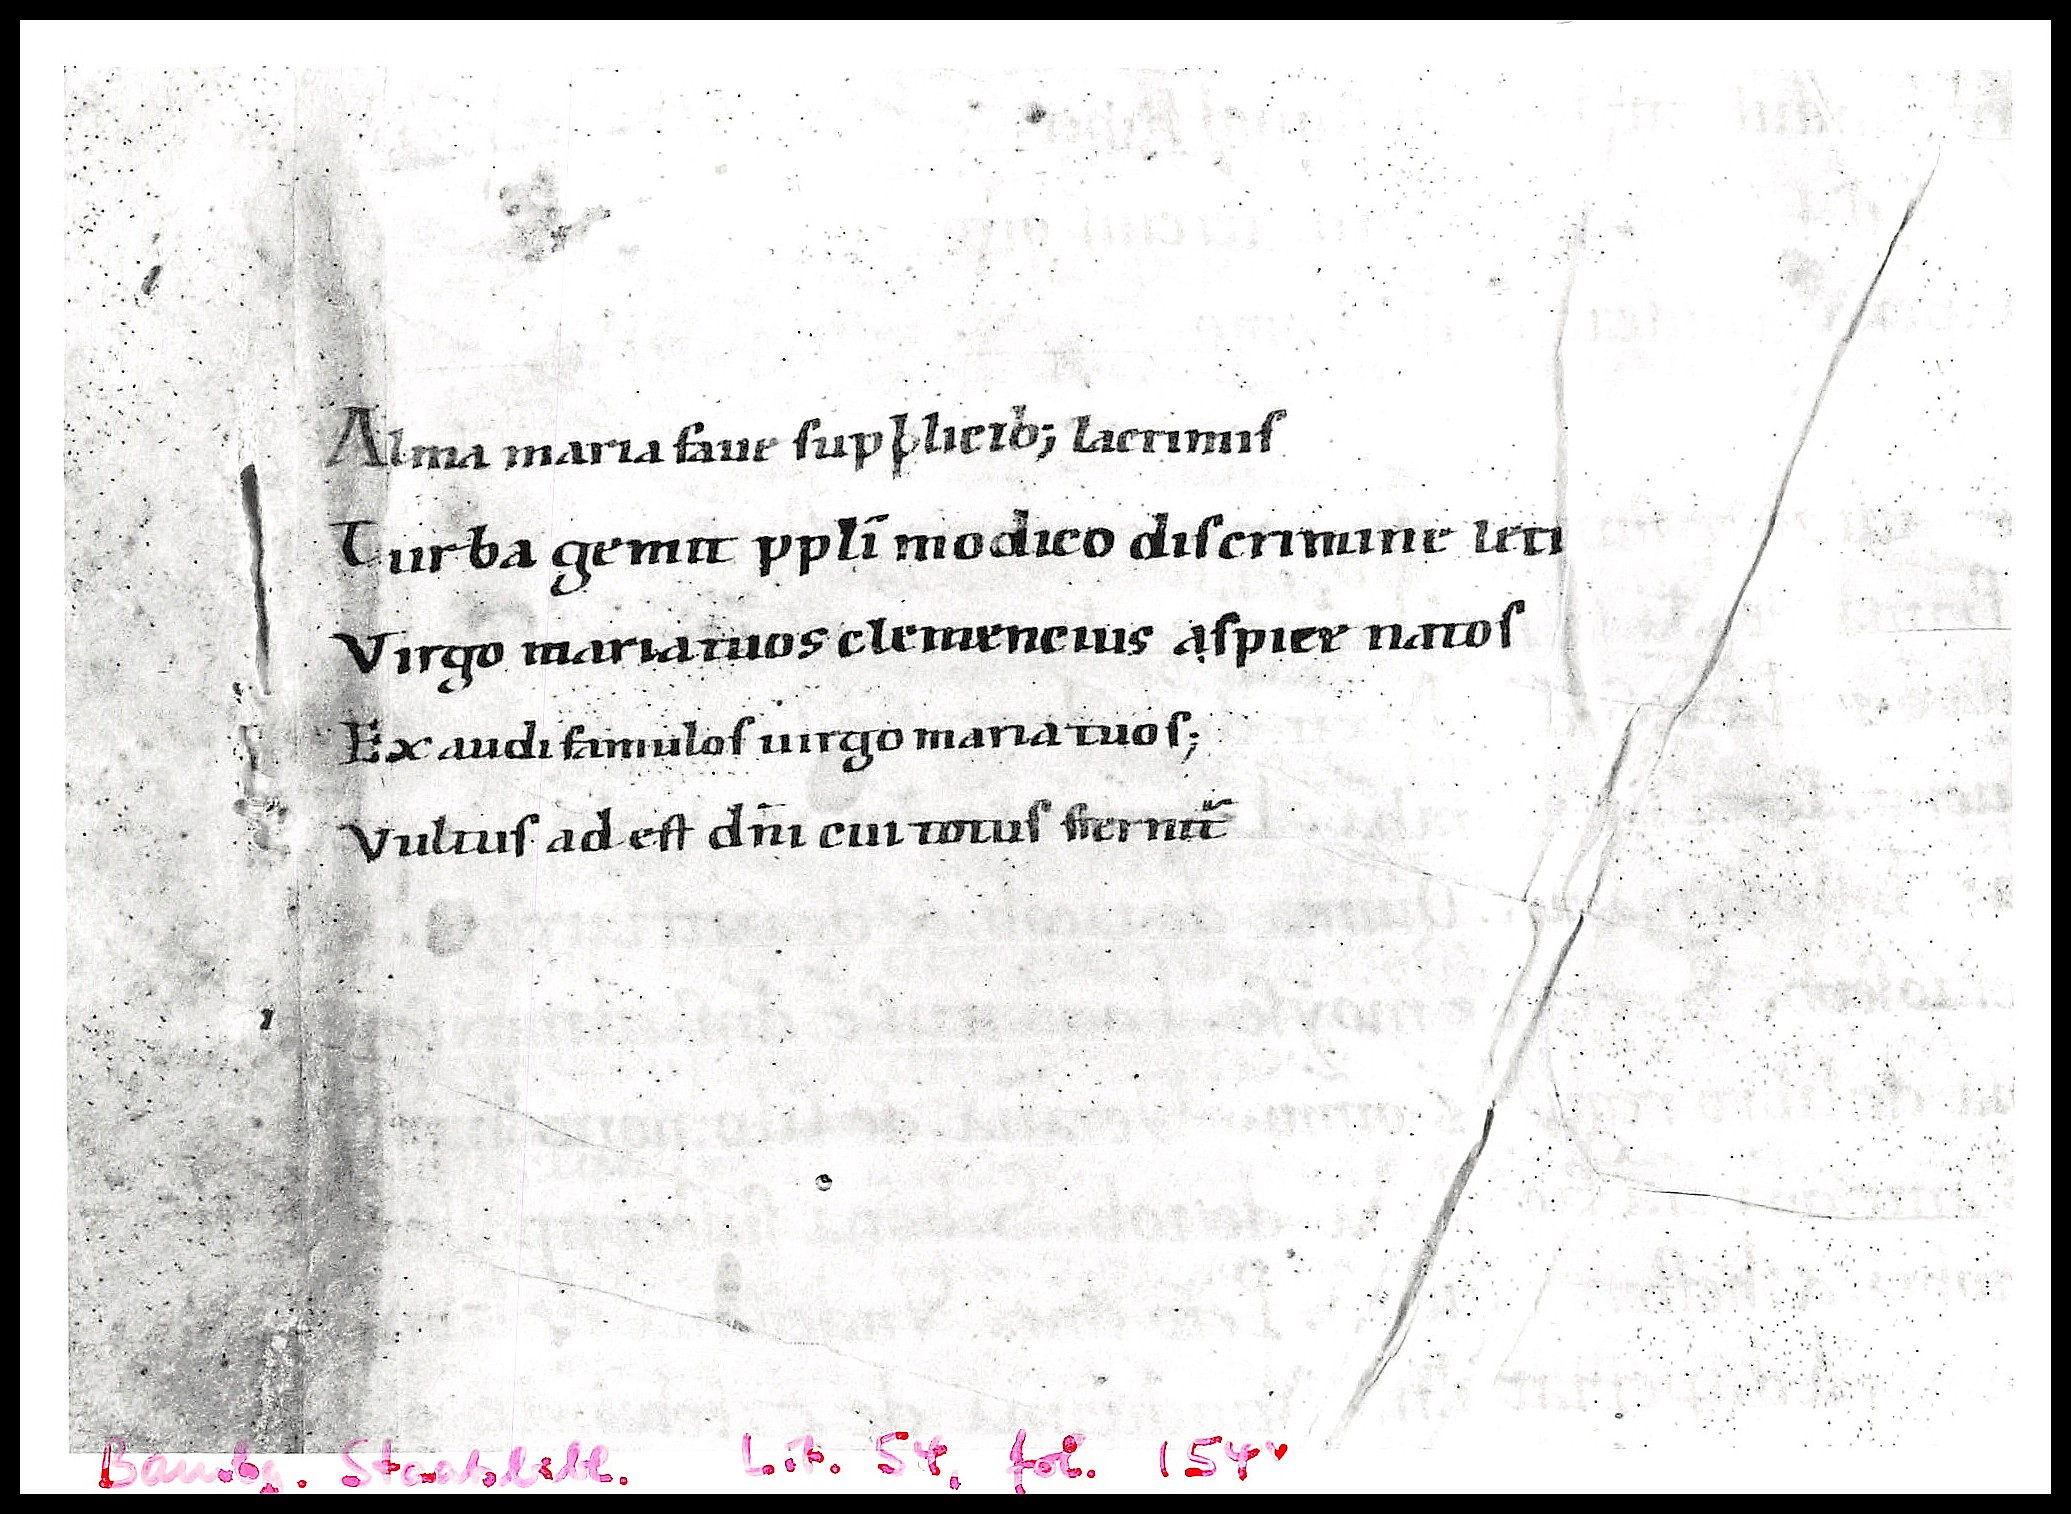 Alma maria faue supplicib; lacrimis
Turba gemit ppl̄i modico discrimine leti
Virgo maria tuos clemencius aspice natos
Exaudi famulos uirgo maria tuos;
Vultus adest dn̄i cui totus sternit᷑
Bambg. Staatsbibl. Lit. 54, fol. 154v